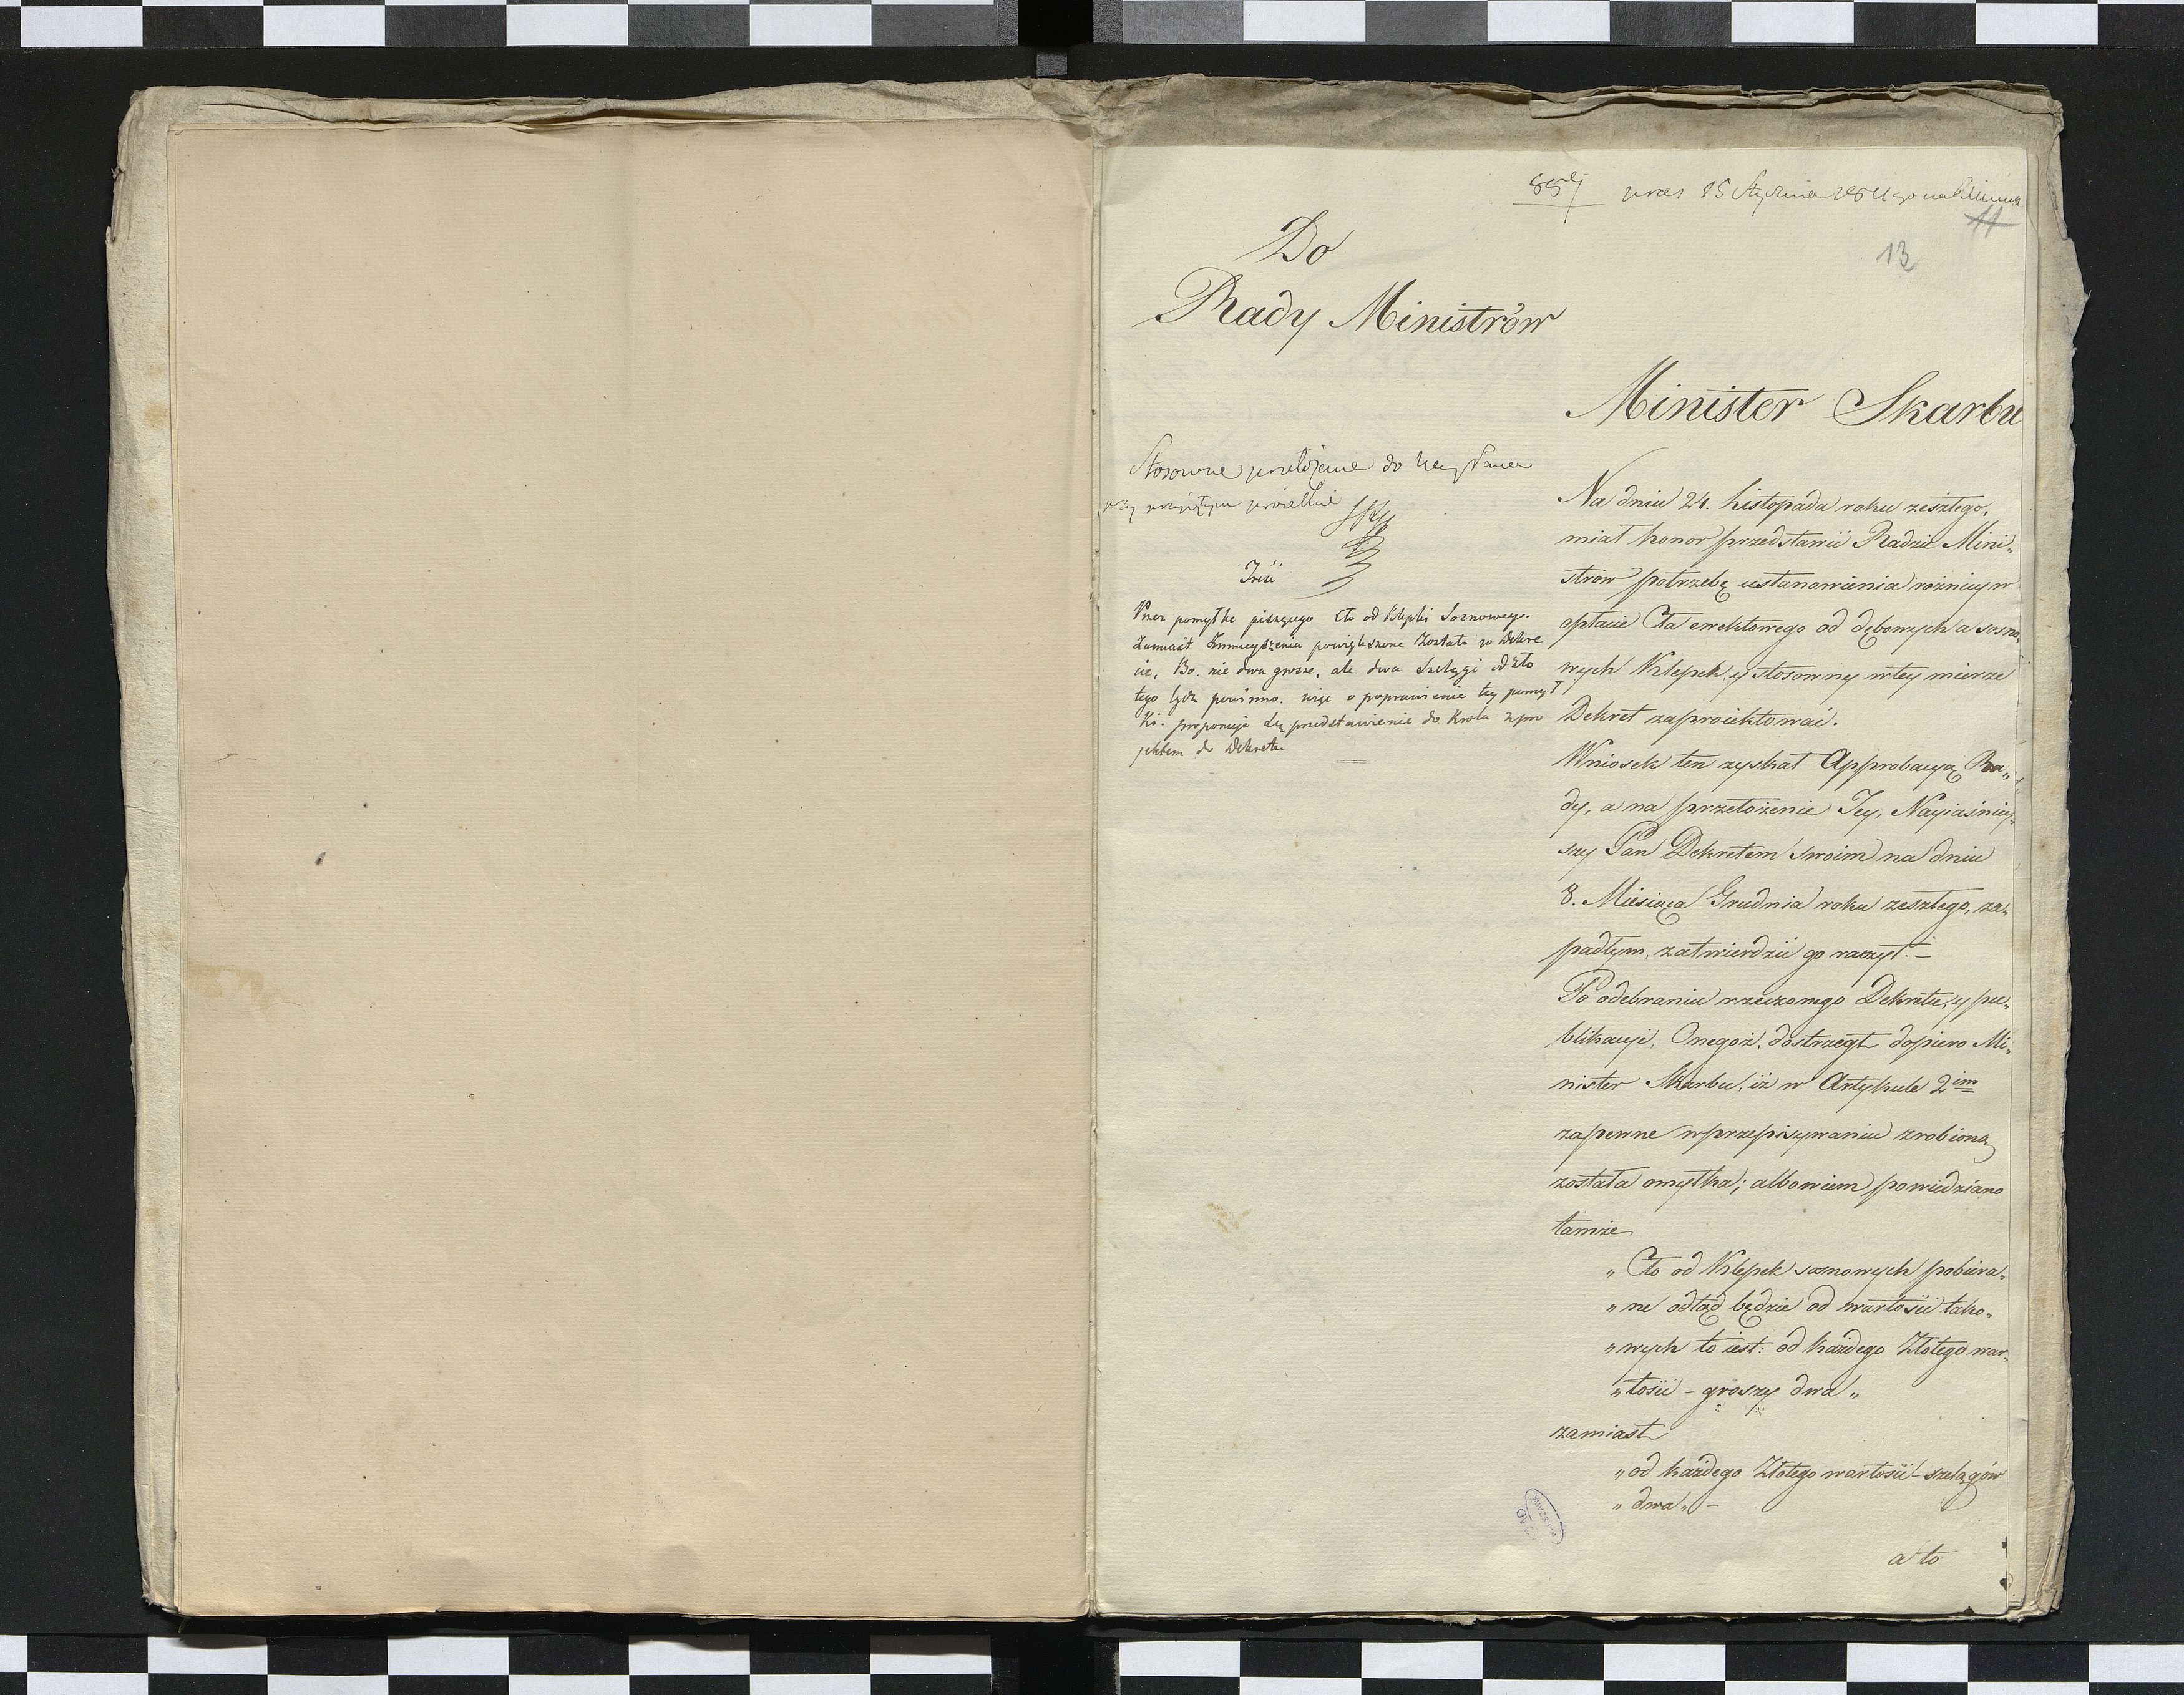 13
Do
Rady Ministrów
Minister Skarbu
Stosowne przełożenie do
Treść
Przez pomyłkę piszącego Cło od Klepki Sosnowey
Zamiast Zmnieyszenia powiększone Zostało w Dekre
cie, Bo. nie dwa grosze, ale dwa Szelągi od zło
tego bydz powinno. więc o poprawienie tey pomył
ki. proponuje się przedstawienie do Krola z pro
jektem do Dekretu
Na dniu 24. Listopada roku zeszłego,
miał honor przedstawić Radzie Mini„
strów potrzebę ustanowienia różnicy w
opłacie Cła ewektowego od dębowych a sosno„
wych Klepek, y stosowny w tey mierze
Dekret zaproiektować.
Wniosek ten zyskał Approbacyą Ra„
dy, a na przełożenie Jey, Nayiaśniey„
szy Pan Dekretem swoim na dniu
8. Miesiąca Grudnia roku zeszłego, za„
padłym, zatwierdzić go raczył. –
Po odebraniu rzeczonego Dekretu, y pu„
blikacyi, Onegoż, dostrzegł dopiero Mi„
nister Skarbu, iż w Artykule 2im
zapewne w przepisywaniu zrobiona
została omyłka; albowiem powiedziano
tamże
„ Cło od Klepek sosnowych pobiera„
„ ne odtąd będzie od wartości tako„
„ wych to iest: od każdego Złotego war„
„ tości – groszy dwa „
zamiast
„ od każdego Złotego wartości – szelągów
„ dwa „ –
a to